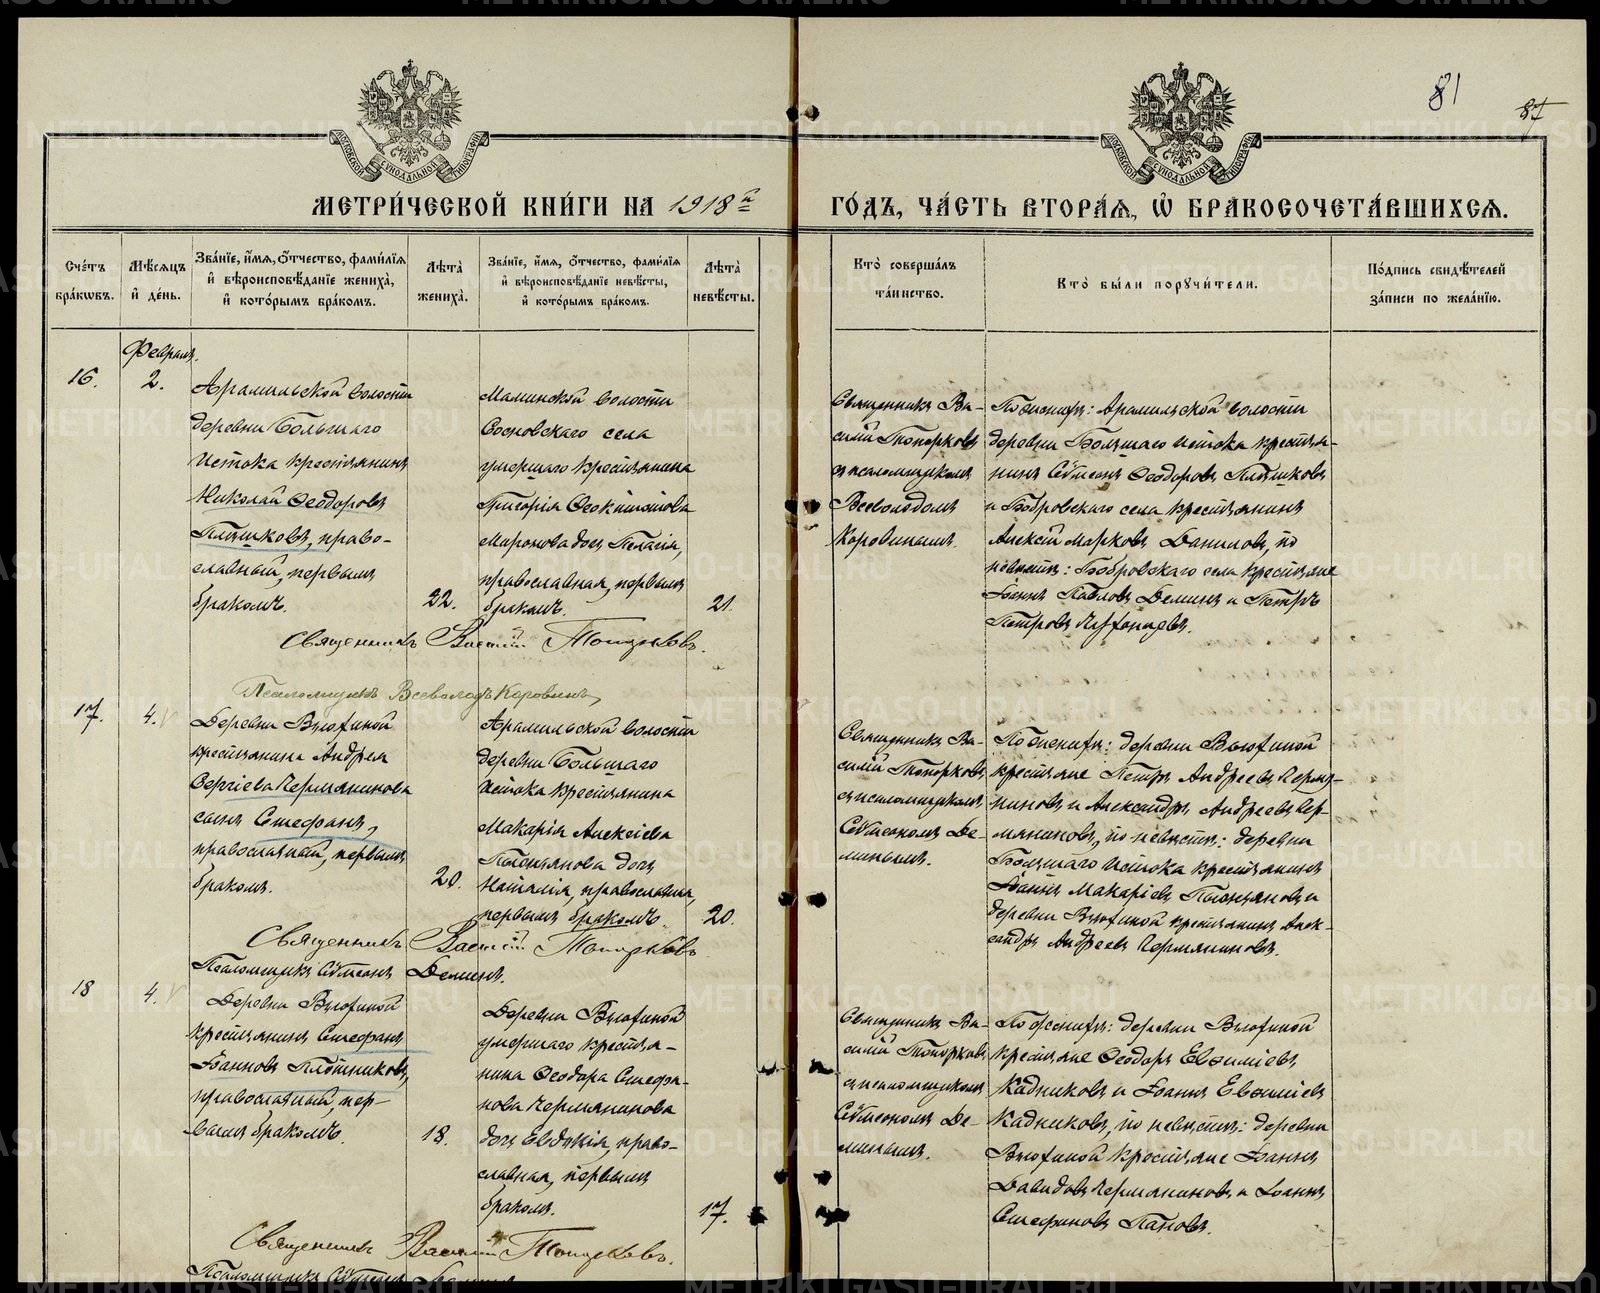 81
87
МЕТРИ́ЧЕСКОЙ КНИ́ГИ НА 1918 й
ГО́ДЪ, ЧА́СТЬ ВТОРА́Я, Ѽ БРАКОСОЧЕТА́ВШИХСЯ.
Сче́тъ бра́кωвъ.
Мѣ́сяцъ и҆ де́нь.
Зва́нїе, и҆́мя, ѻ҆́тчество, фами́лїя и҆ вѣроисповѣ́данїе жениха̀, и҆ кото́рымъ бра́комъ.
Лѣта̀ жениха̀.
Зва́нїе, и҆́мя, ѻ҆́тчество, фами́лїя и҆ вѣроисповѣ́данїе невѣ́сты, и҆ кото́рымъ бра́комъ.
Лѣта̀ невѣ́сты.
Кто̀ соверша́лъ та́инство.
Кто̀ бы́ли порꙋчи́тели.
По́дпись свидѣ́телей за́писи по жела́нїю.
16.
Февраля.
2.
Арамильской волости
деревни Большаго
Истока крестьянинъ
Николай Ѳеодоровъ
Плѣшковъ, право-
славный, первымъ
бракомъ.
22.
Маминской волости
Сосновскаго села
умершаго крестьянина
Григорія Ѳеоктистова
Миронова дочь Пелагія,
православная, первымъ
бракомъ.
21.
Священникъ Ва-
силій Топорковъ
съ псаломщикомъ
Всеволодомъ
Коровинымъ.
По женихѣ: Арамильской волости
деревни Большаго Истока крестья-
нинъ Сѵмеонъ Ѳеодоровъ Плѣшковъ
и Бобровскаго села крестьянинъ
Алексій Марковъ Даниловъ, по
невѣстѣ: Бобровскаго села крестьяне
Іоаннъ Павловъ Деминъ и Петръ
Петровъ
Священникъ Василій Топорковъ.
Псаломщикъ Всеволодъ Коровинъ,
17.
4.
Деревни Вьюхиной
крестьянина Андрея
Сергіева Чермянинова
сынъ Стефанъ,
православный, первымъ
бракомъ.
20.
Арамильской волости
деревни Большаго
Истока крестьянина
Макарія Алексіева
дочь
Наталія, православная,
первымъ бракомъ.
20.
Священникъ Ва-
силій Топорковъ
съ псаломщикомъ
Сѵмеономъ Де-
минымъ.
По женихѣ: деревни Вьюхиной
крестьяне Петръ Андреевъ Чермя-
ниновъ и Александръ Андреевъ Чер-
мяниновъ, по невѣстѣ: деревни
Большаго Истока крестьянинъ
Іоаннъ Макаріевъ и
деревни Вьюхиной крестьянинъ Алек-
сандръ Андреевъ Чермяниновъ.
Священникъ Василій Топорковъ
Псаломщикъ Сѵмеонъ Деминъ.
18
4.
Деревни Вьюхиной
крестьянинъ Стефанъ
Іоанновъ Плотниковъ,
православный, пер-
вымъ бракомъ.
18.
Деревни Вьюхиной
умершаго крестья-
нина Ѳеодора Стефа-
нова Чермянинова
дочь Евдокія, право-
славная, первымъ
бракомъ.
17.
Священникъ Ва-
силій Топорковъ
съ псаломщикомъ
Сѵмеономъ Де-
минымъ.
По женихѣ: деревни Вьюхиной
крестьяне Ѳеодоръ Евѳиміевъ
Кадниковъ и Іоаннъ Евѳиміевъ
Кадниковъ, по невѣстѣ: деревни
Вьюхиной крестьяне Іоаннъ
Давидовъ Чермяниновъ и Іоаннъ
Стефановъ Пановъ.
Священникъ Василій Топорковъ.
Псаломщикъ Сѵмеонъ Деминъ
METRIKI.GASO-URAL.RU